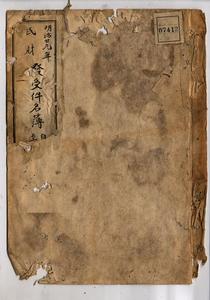 明治廿九年
民財
發受件名簿
07412